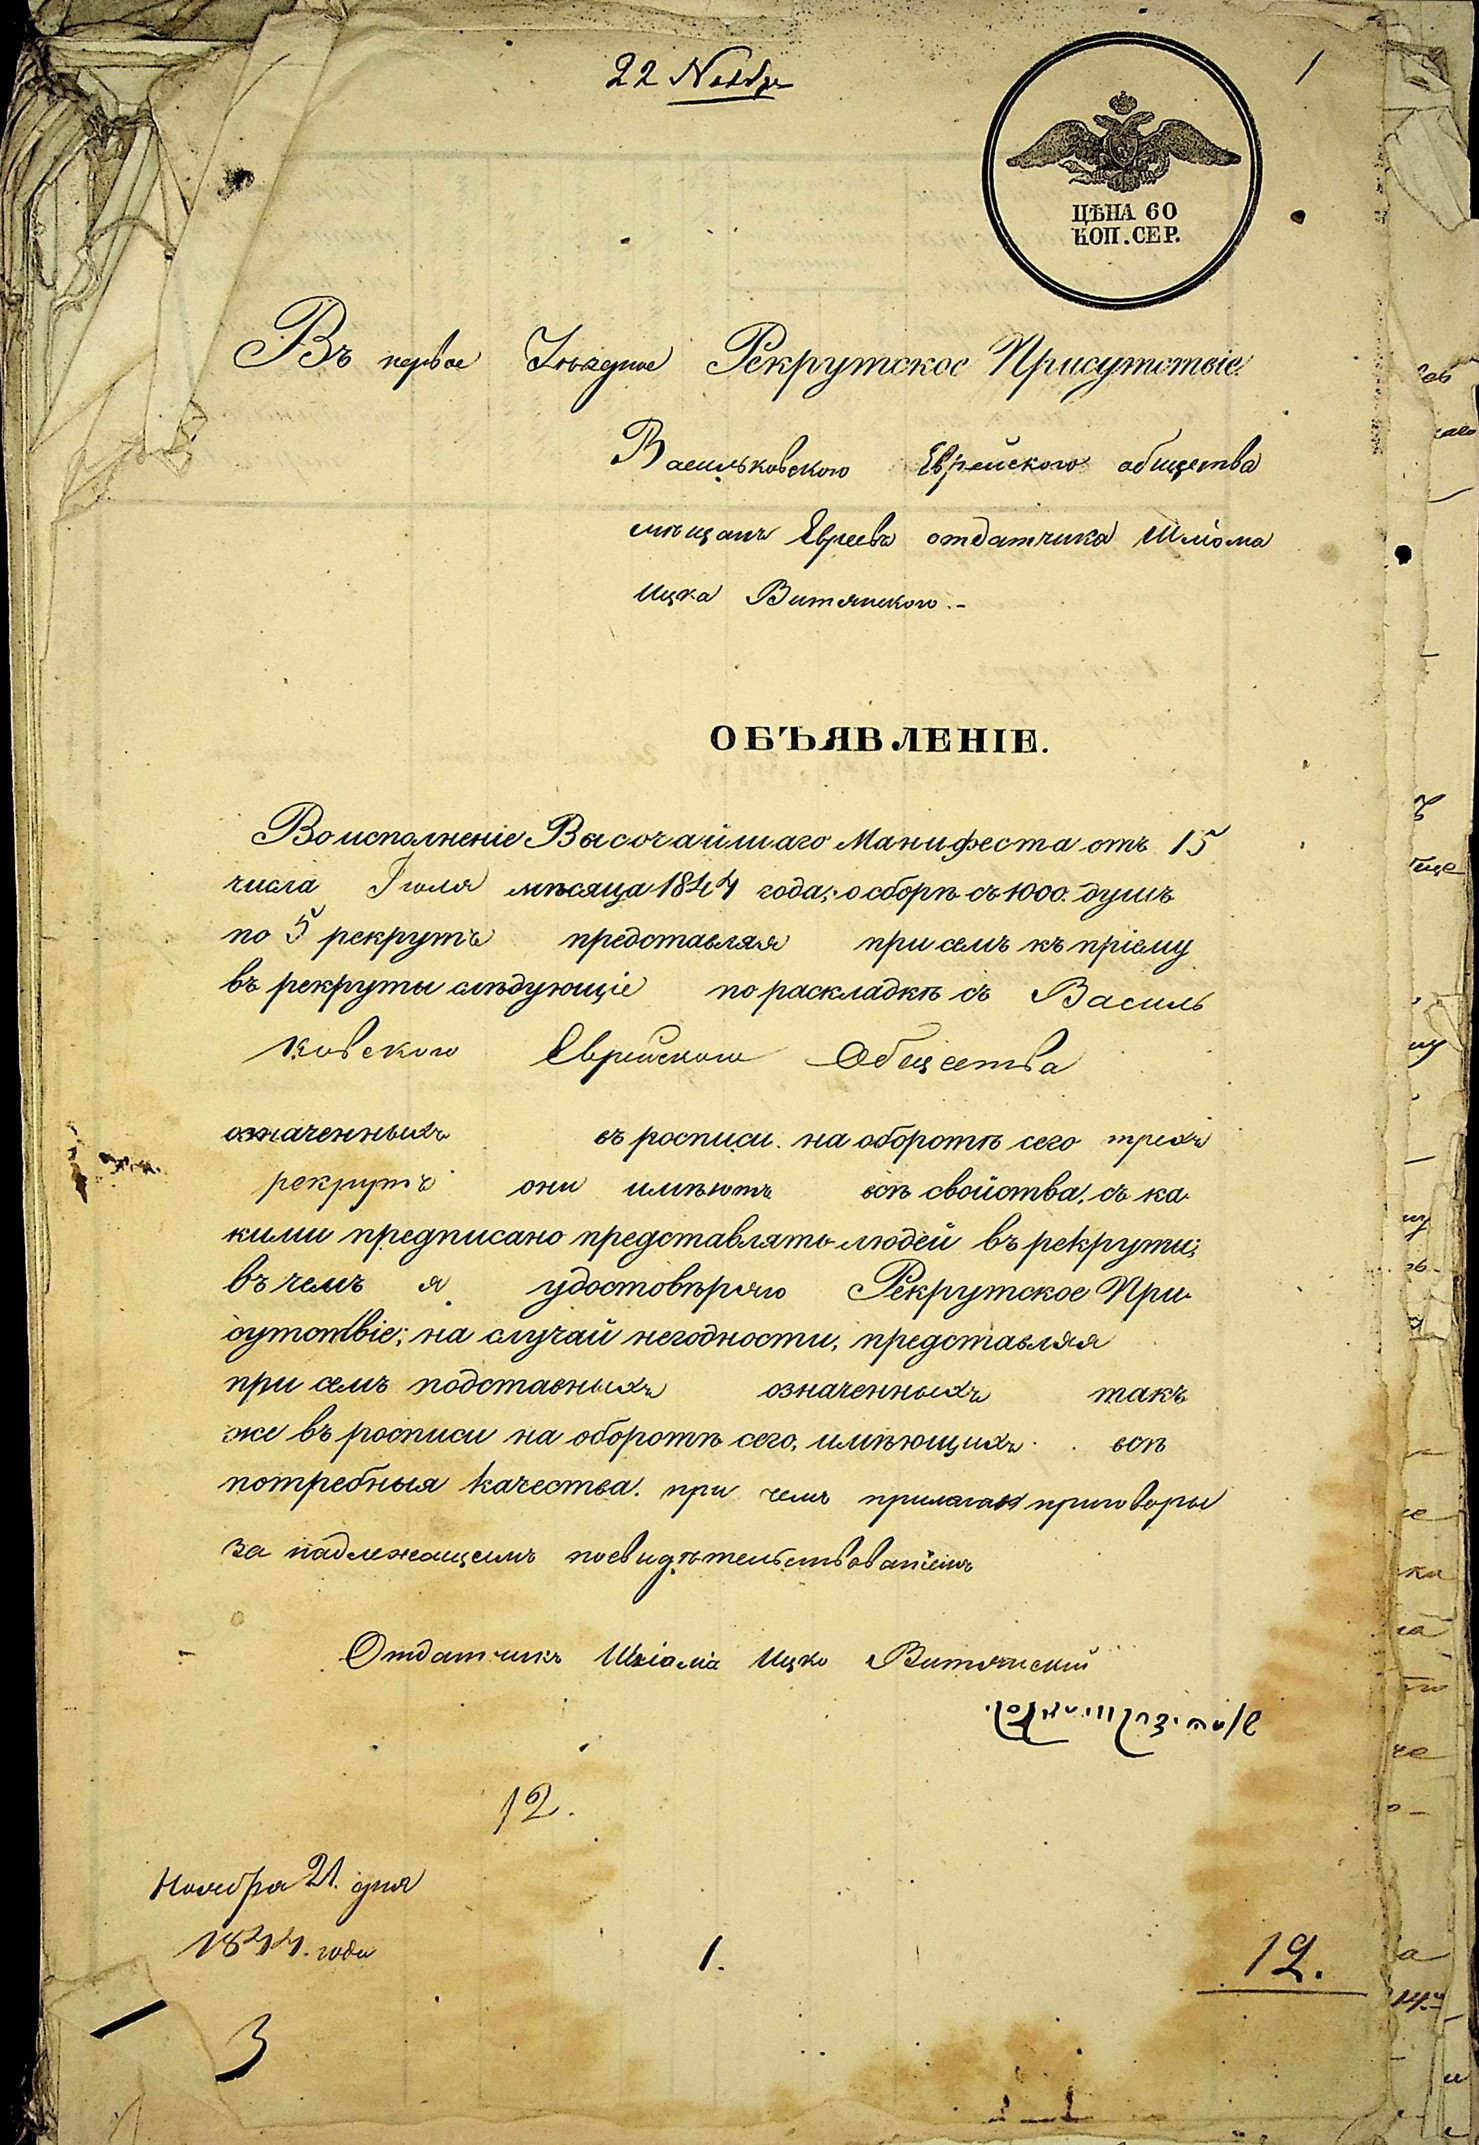 22 Ноябр
1
ЦѢНА 60
КОП. СЕР.
Въ первое Уѣздное Рекрутское Присутствіе.
Васильковскаго Еврейскаго общества
мѣщанъ Евреевъ отдатчика Шліома
Ицка Витянского.-
ОБЪЯВЛЕНІЕ.
Во исполненіе Высочайшаго Манифеста отъ 15
числа Іюля мѣсяца 1844 года, о сборѣ съ 1000 душъ
по 5 рекрутъ представляя при семъ къ пріему
въ рекруты слѣдующіе по раскладкѣ съ Василь
ковского Еврейского Общества
означенныхъ въ росписи на оборотѣ сего трехъ
рекрутъ они имѣютъ всѣ свойства, съ ка-
кими предписано представлять людей въ рекруты;
въ чемъ я удостовѣряю Рекрутское При-
сутствіе; на случай негодности, представляя
при семъ подставныхъ означенныхъ такъ
же въ росписи на оборотѣ сего, имѣющихъ всѣ
потребныя качества. при чемъ прилагая приговоры
за надлежащемъ посвидѣтельствованіемъ
Отдатчикъ Шліома Ицко Витянский
12.
Ноября 21. дня
1844. года
1.
12.
3